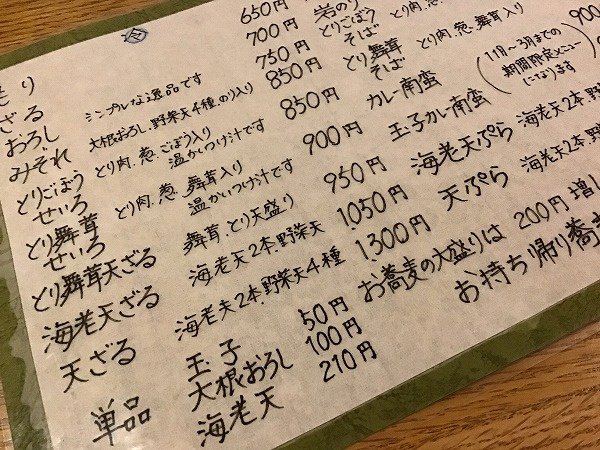 冷
もり 650円
ざる シンプルな逸品です 700円
おろし 大根おろし、野菜天4種、のり入り 750円
みぞれ 850円
とりごぼうせいろ とり肉、葱、ごぼう入り 温かいつけ汁です 850円
とり舞茸せいろ とり肉、葱、舞茸入り 温かいつけ汁です 900円
とり舞茸天ざる 舞茸、とり天盛り 950円
海老天ざる 海老天2本、野菜天 1,050円
天ざる 海老天2本、野菜天4種 1,300円
単品 玉子 50円
大根おろし 100円
海老天 210円
岩のり
とりごぼうそば とり肉、葱
とり舞茸そば とり肉、葱、舞茸入り 900
カレー南蛮
玉子カレー南蛮
(11月〜3月までの期間限定メニューになります)
海老天ぷら 海老天2本、野
天ぷら 海老天2本、野
お蕎麦の大盛りは 200円 増し
お持ち帰り蕎